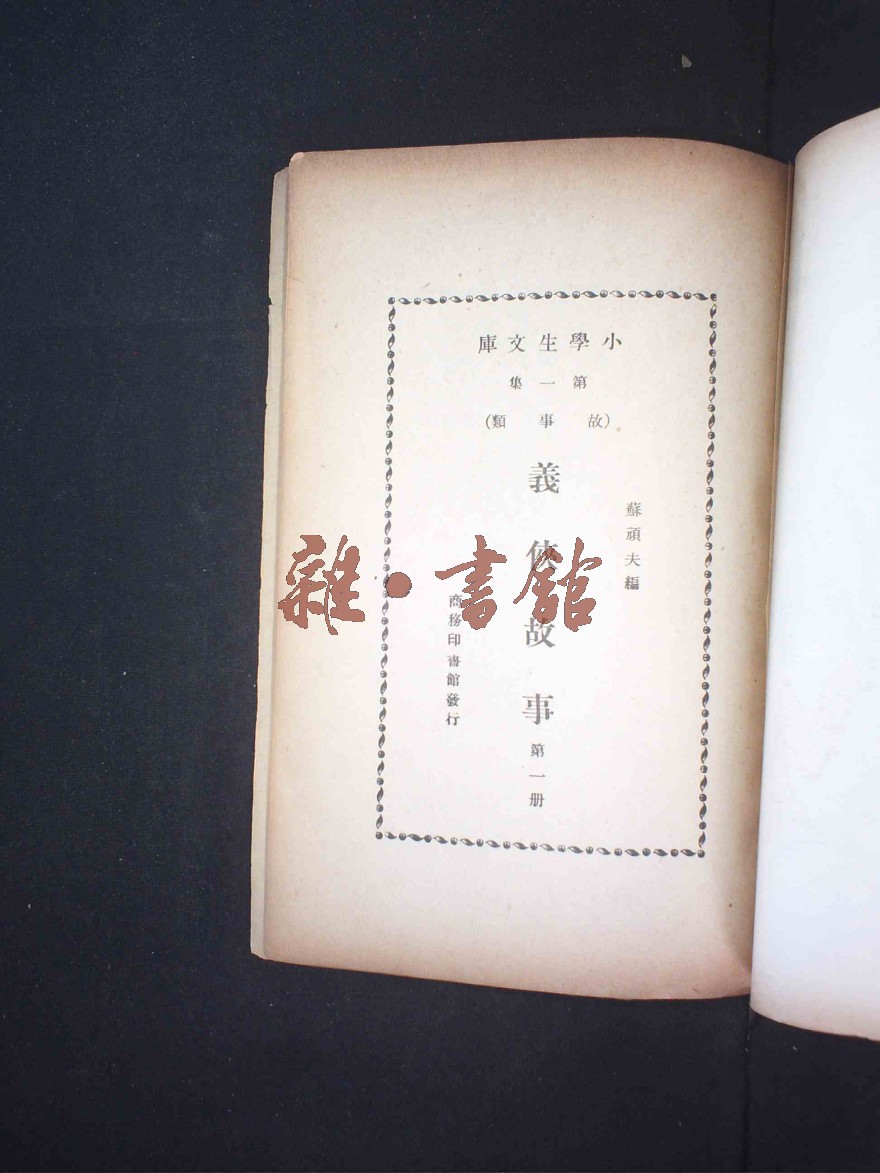 小學生文庫
第一集
(故事類)
蘇頑夫編
義俠故事 第一册
商務印書館發行
雜·書館